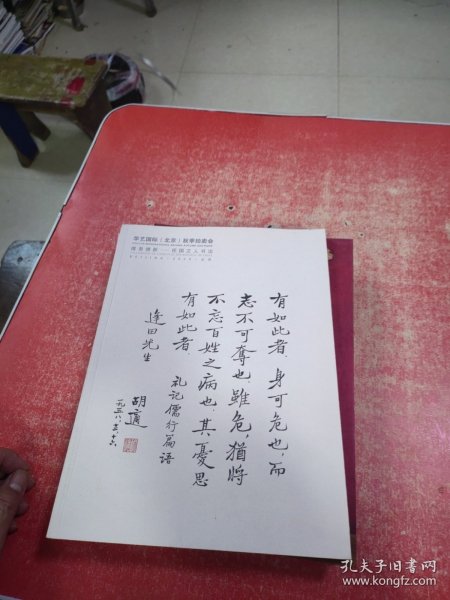 华艺国际（北京）秋季拍卖会
有如此者身可危也，而
志不可奪也，雖危，猶將
不忘百姓之病也，其憂思
有如此者
礼記儒行篇語
逢田先生
胡適
孔夫子旧书网
www.kongfz.com